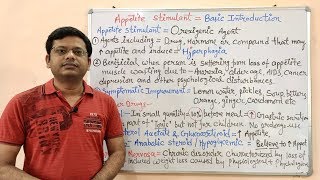 Appetite Stimulant = Basic Introduction
Appetite Stimulant = Orexigenic Agent
① Agents including = Drug, Hormone or Compound that may
↑ appetite and induce = Hyperphagia
② Beneficial when person is suffering from loss of appetite
muscle wasting due to - Anorexia, older age, AIDS, cancer
depression and other psychological disturbances.
Symptomatic Improvement = Lemon water, pickles, Soup, bitters
Orange, ginger, Cardamom etc
Drugs -
In small quantity = before meal = ↑ Gastric secretion
part of "Tonic" but not for children. No prolong use
Acetate & Glucocorticoid = ↑ Appetite
Anabolic steroid / Hypoglycemic = Believe to ↑ Appet
Chronic disorder Characterized by loss of
induced Weight loss caused by Physiological +